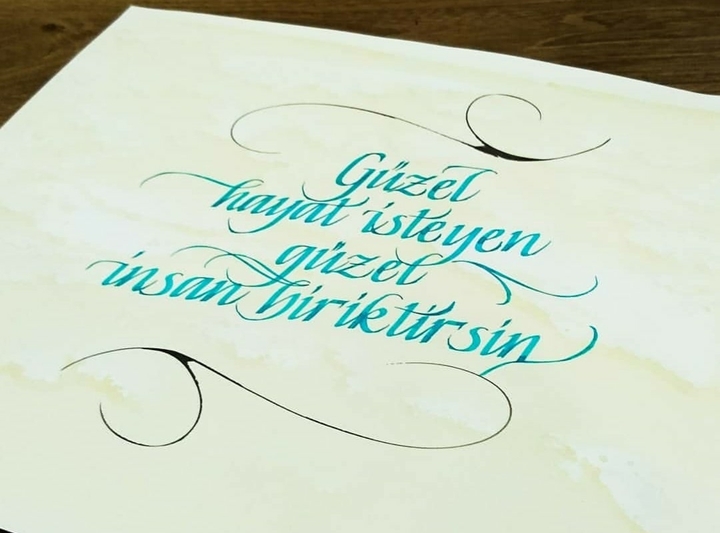 Güzel
hayat isteyen
güzel
insan biriktirsin